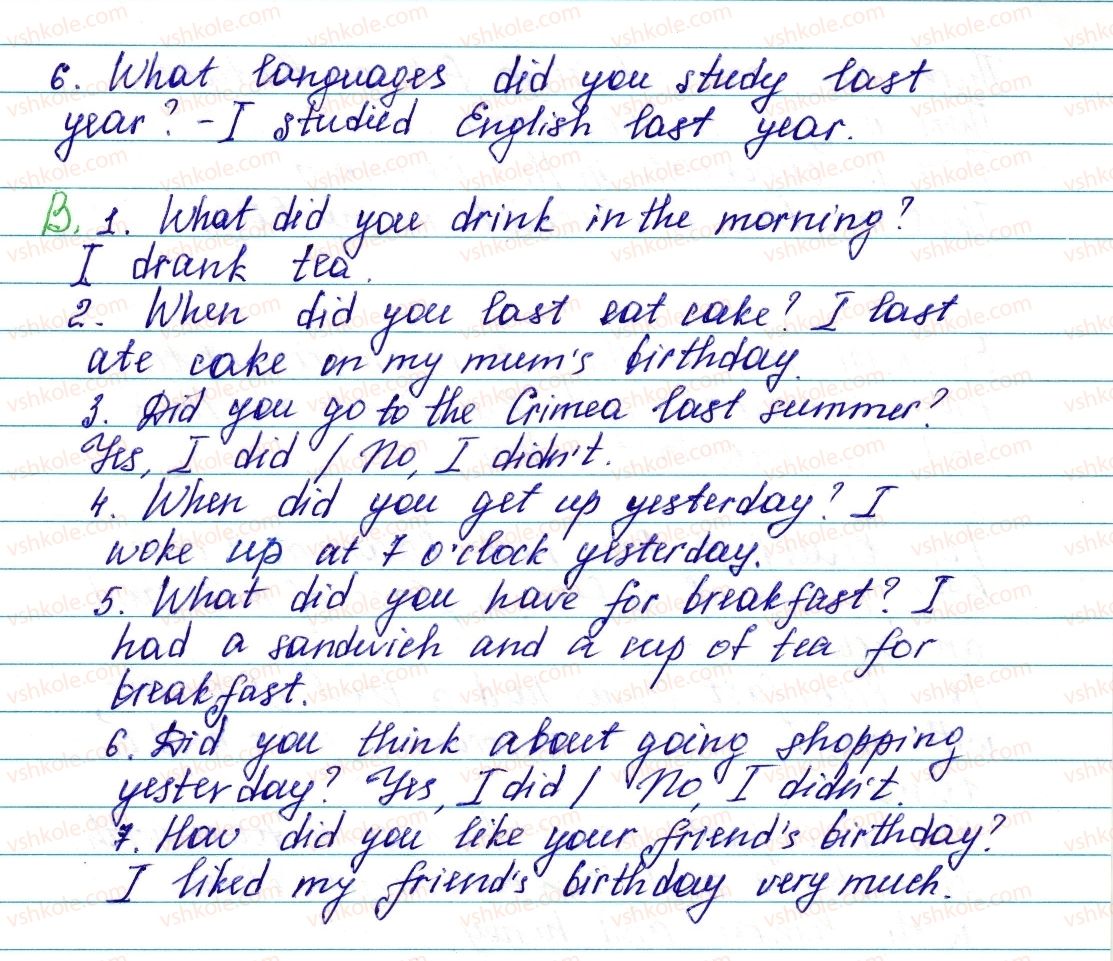 6. What languages did you study last
year? - I studied English last year.
B. 1. What did you drink in the morning?
I drank tea.
2. When did you last eat cake? I last
ate cake on my mum's birthday.
3. Did you go to the Crimea last summer?
Yes, I did / No, I didn't.
4. When did you get up yesterday? I
woke up at 7 o'clock yesterday.
5. What did you have for breakfast? I
had a sandwich and a cup of tea for
breakfast.
6. Did you think about going shopping
yesterday? Yes, I did / No, I didn't.
7. How did you like your friend's birthday?
I liked my friend's birthday very much.
vshkole.com